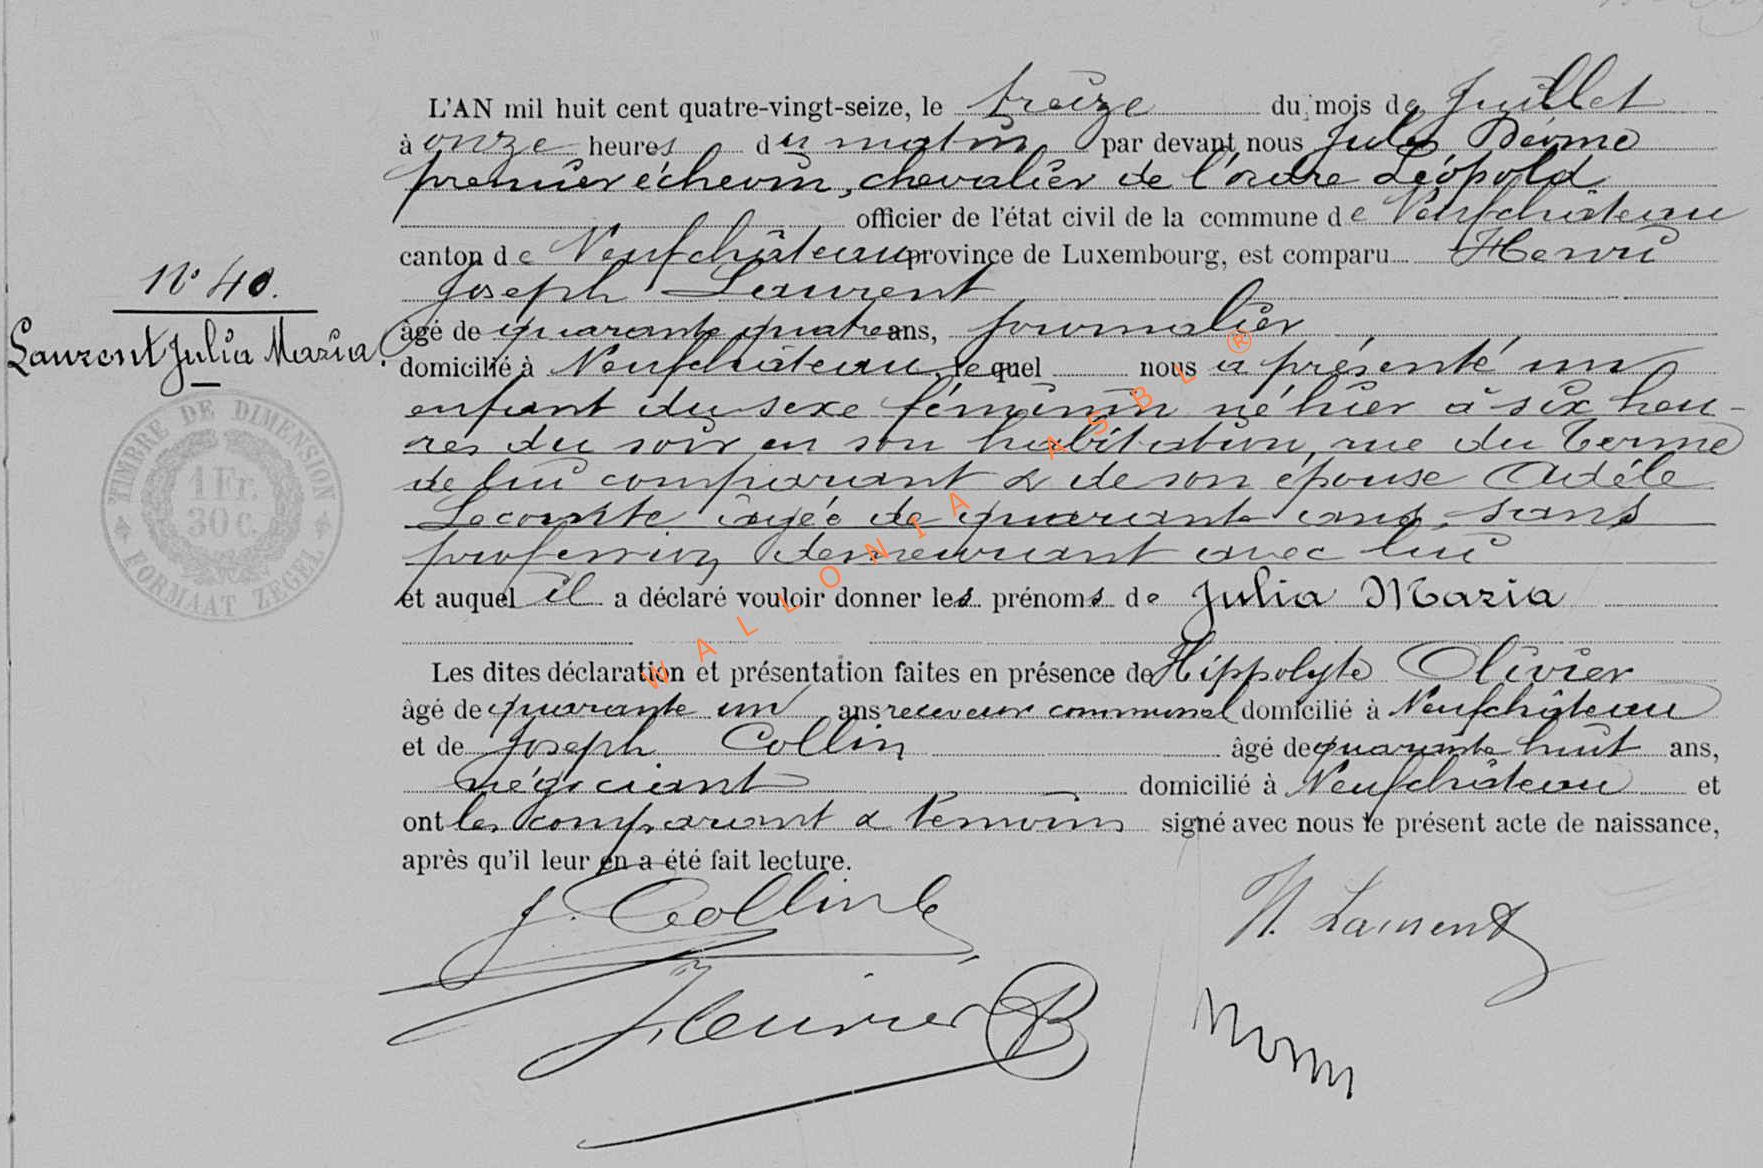 L'AN mil huit cent quatre-vingt-seize, le treize du mois de Juillet
à onze heures du matin par devant nous Jules
premier échevin, chevalier de l'ordre Léopold
officier de l'état civil de la commune de Neufchâteau
canton de Neufchâteau province de Luxembourg, est comparu Henri
N° 40.
Joseph Laurent
Laurent Julia Maria.
âgé de quarante quatre ans, journalier
domicilié à Neufchâteau, lequel nous a présenté un
enfant du sexe féminin né hier à six heu-
res du soir en son habitation, rue du Terme
de lui comparant & de son épouse Adèle
Lecomte âgée de quarante ans, sans
profession, demeurant avec lui
et auquel il a déclaré vouloir donner les prénoms de Julia Maria
TIMBRE DE DIMENSION
1 Fr.
30 c.
FORMAAT ZEGEL
Les dites déclaration et présentation faites en présence de Hippolyte Olivier
âgé de quarante un ans receveur communal domicilié à Neufchâteau
et de Joseph Collin âgé de quarante huit ans,
négociant domicilié à Neufchâteau et
ont les comparant & témoins signé avec nous le présent acte de naissance,
après qu'il leur en a été fait lecture.
J. Collin
H. Laurent
WALLONIA ASBL ®